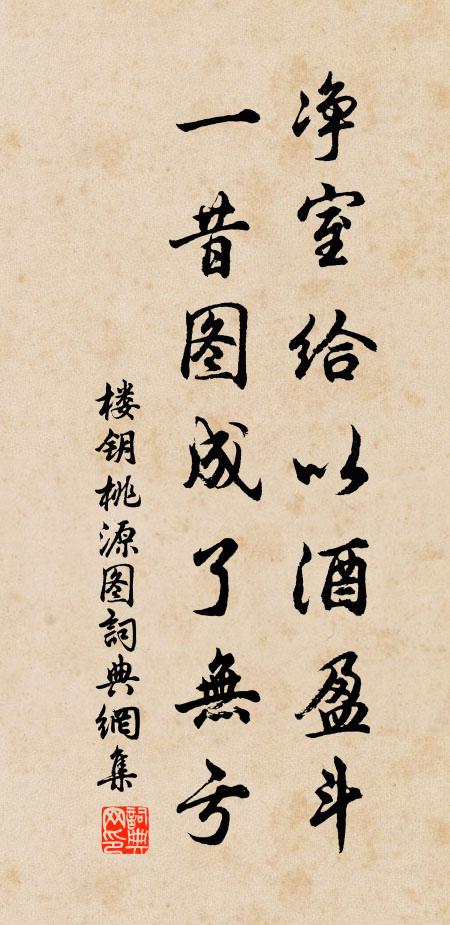 净室给以酒盈斗
一昔图成了無亏
楼钥桃源图詞典網集
詞典網印